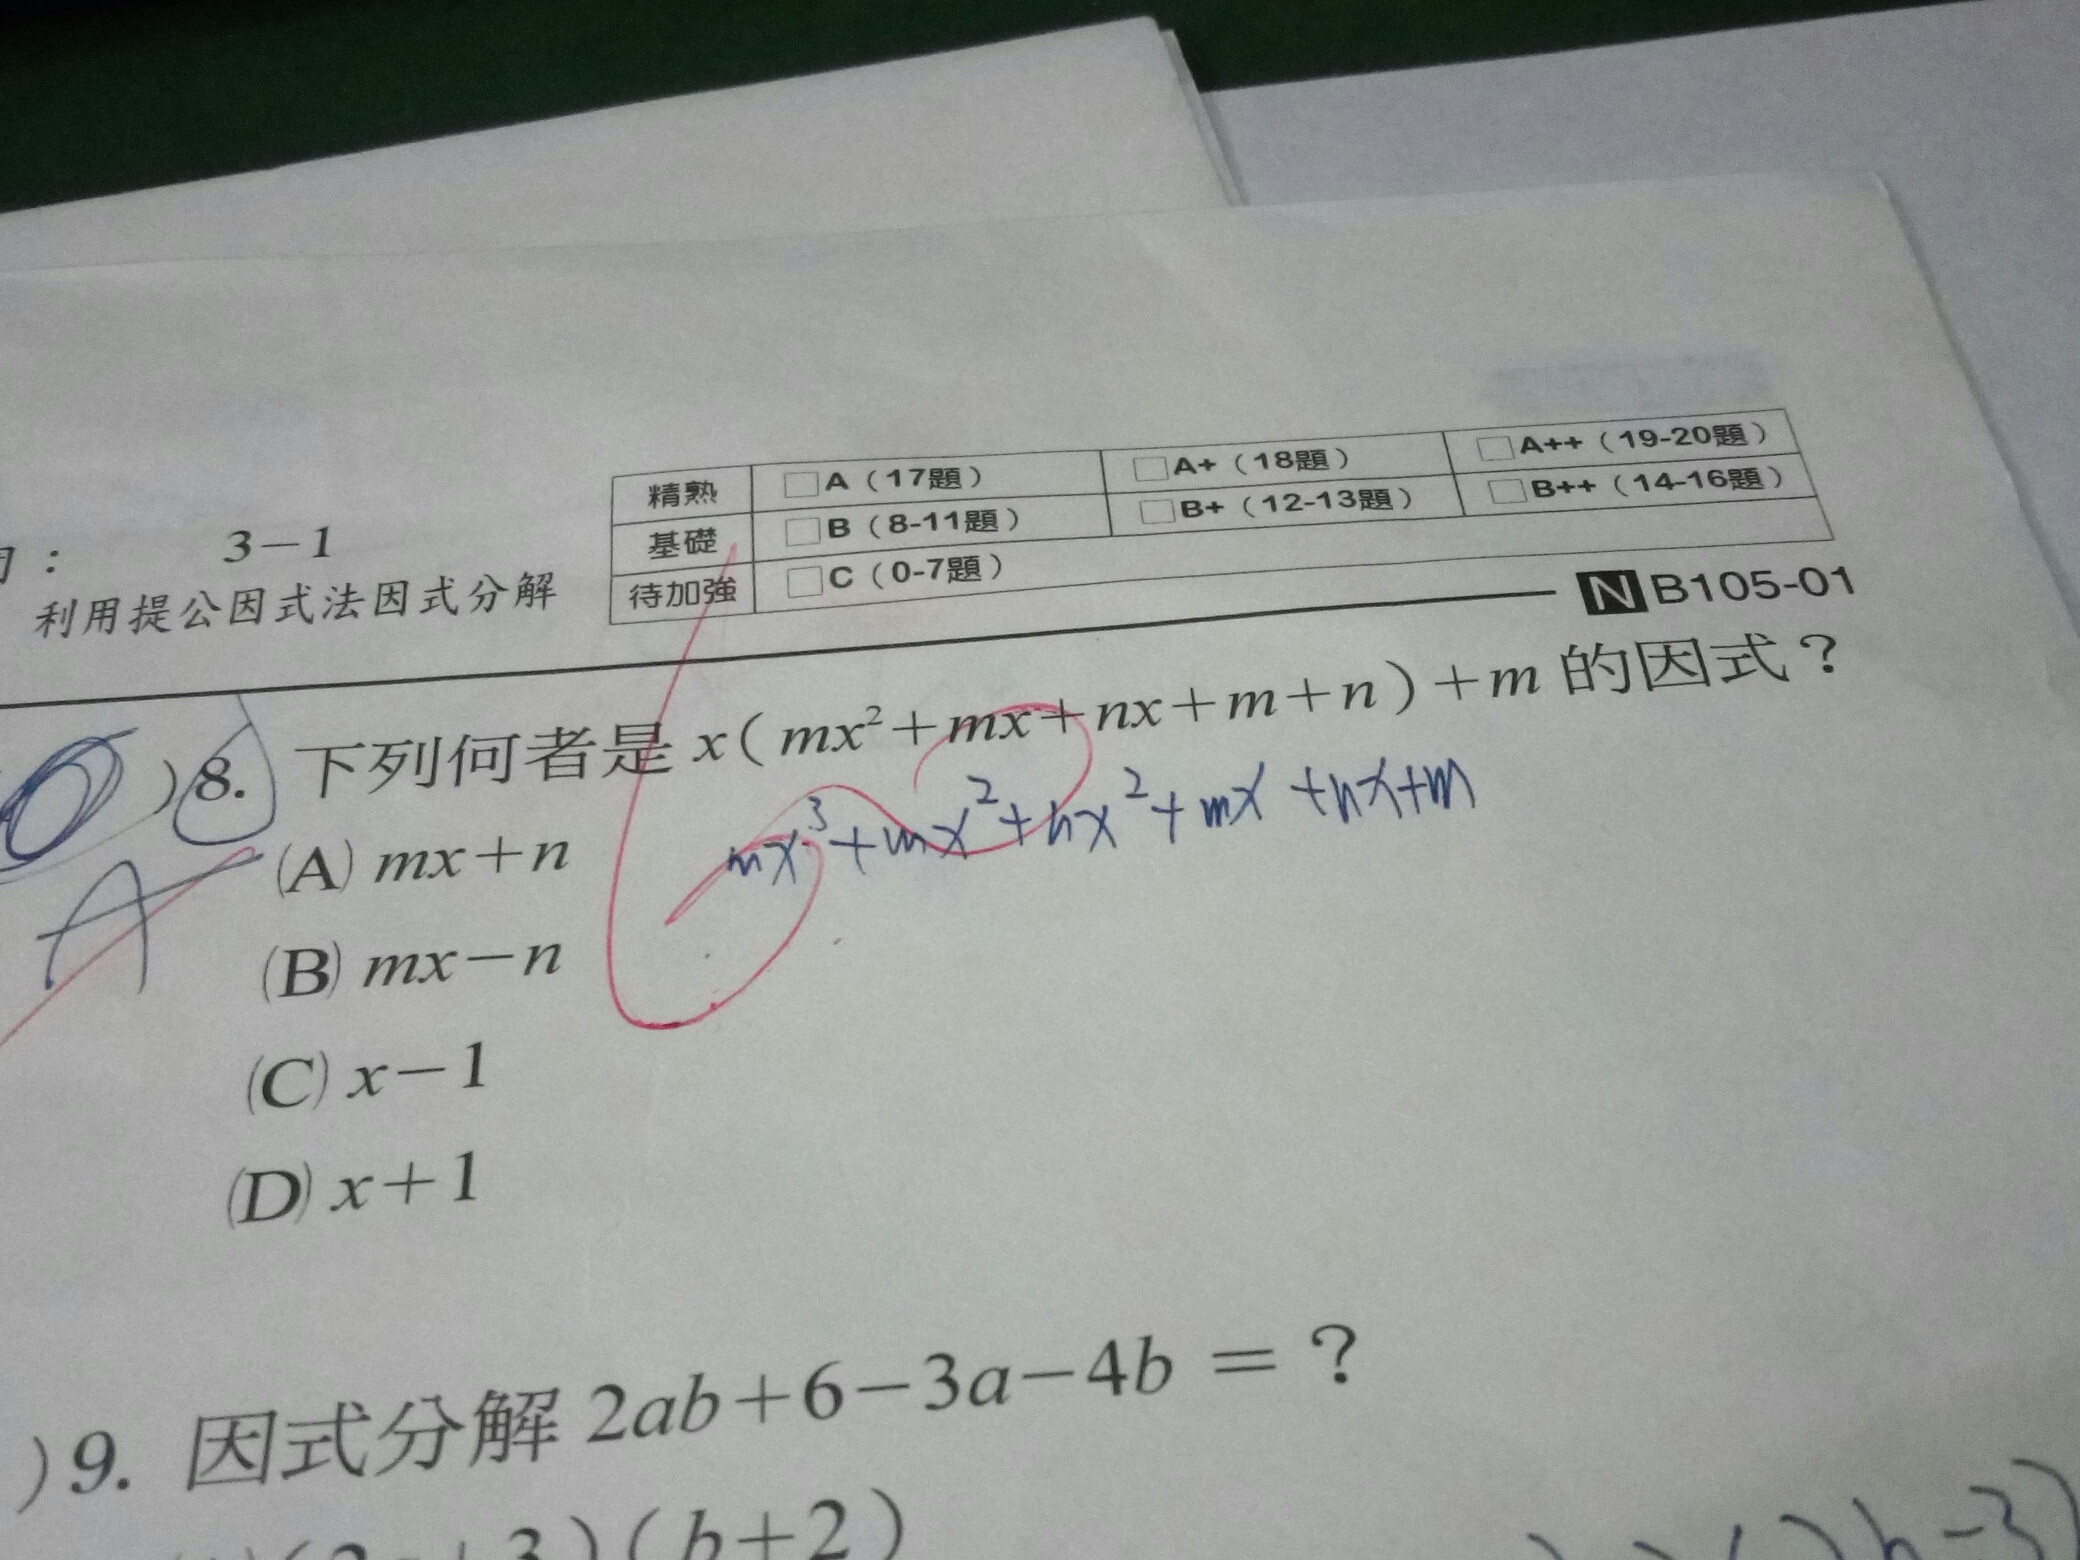 精熟 □A（17題） □A+（18題） □A++（19-20題）
基礎 □B（8-11題） □B+（12-13題） □B++（14-16題）
待加強 □C（0-7題）
3－1
利用提公因式法因式分解
N B105-01
)8. 下列何者是 x( mx²+mx+nx+m+n )+m 的因式？
mx³+mx²+nx²+mx+nx+m
A
(A) mx+n
(B) mx－n
(C) x－1
(D) x+1
)9. 因式分解 2ab+6－3a－4b = ?
)(b+2)